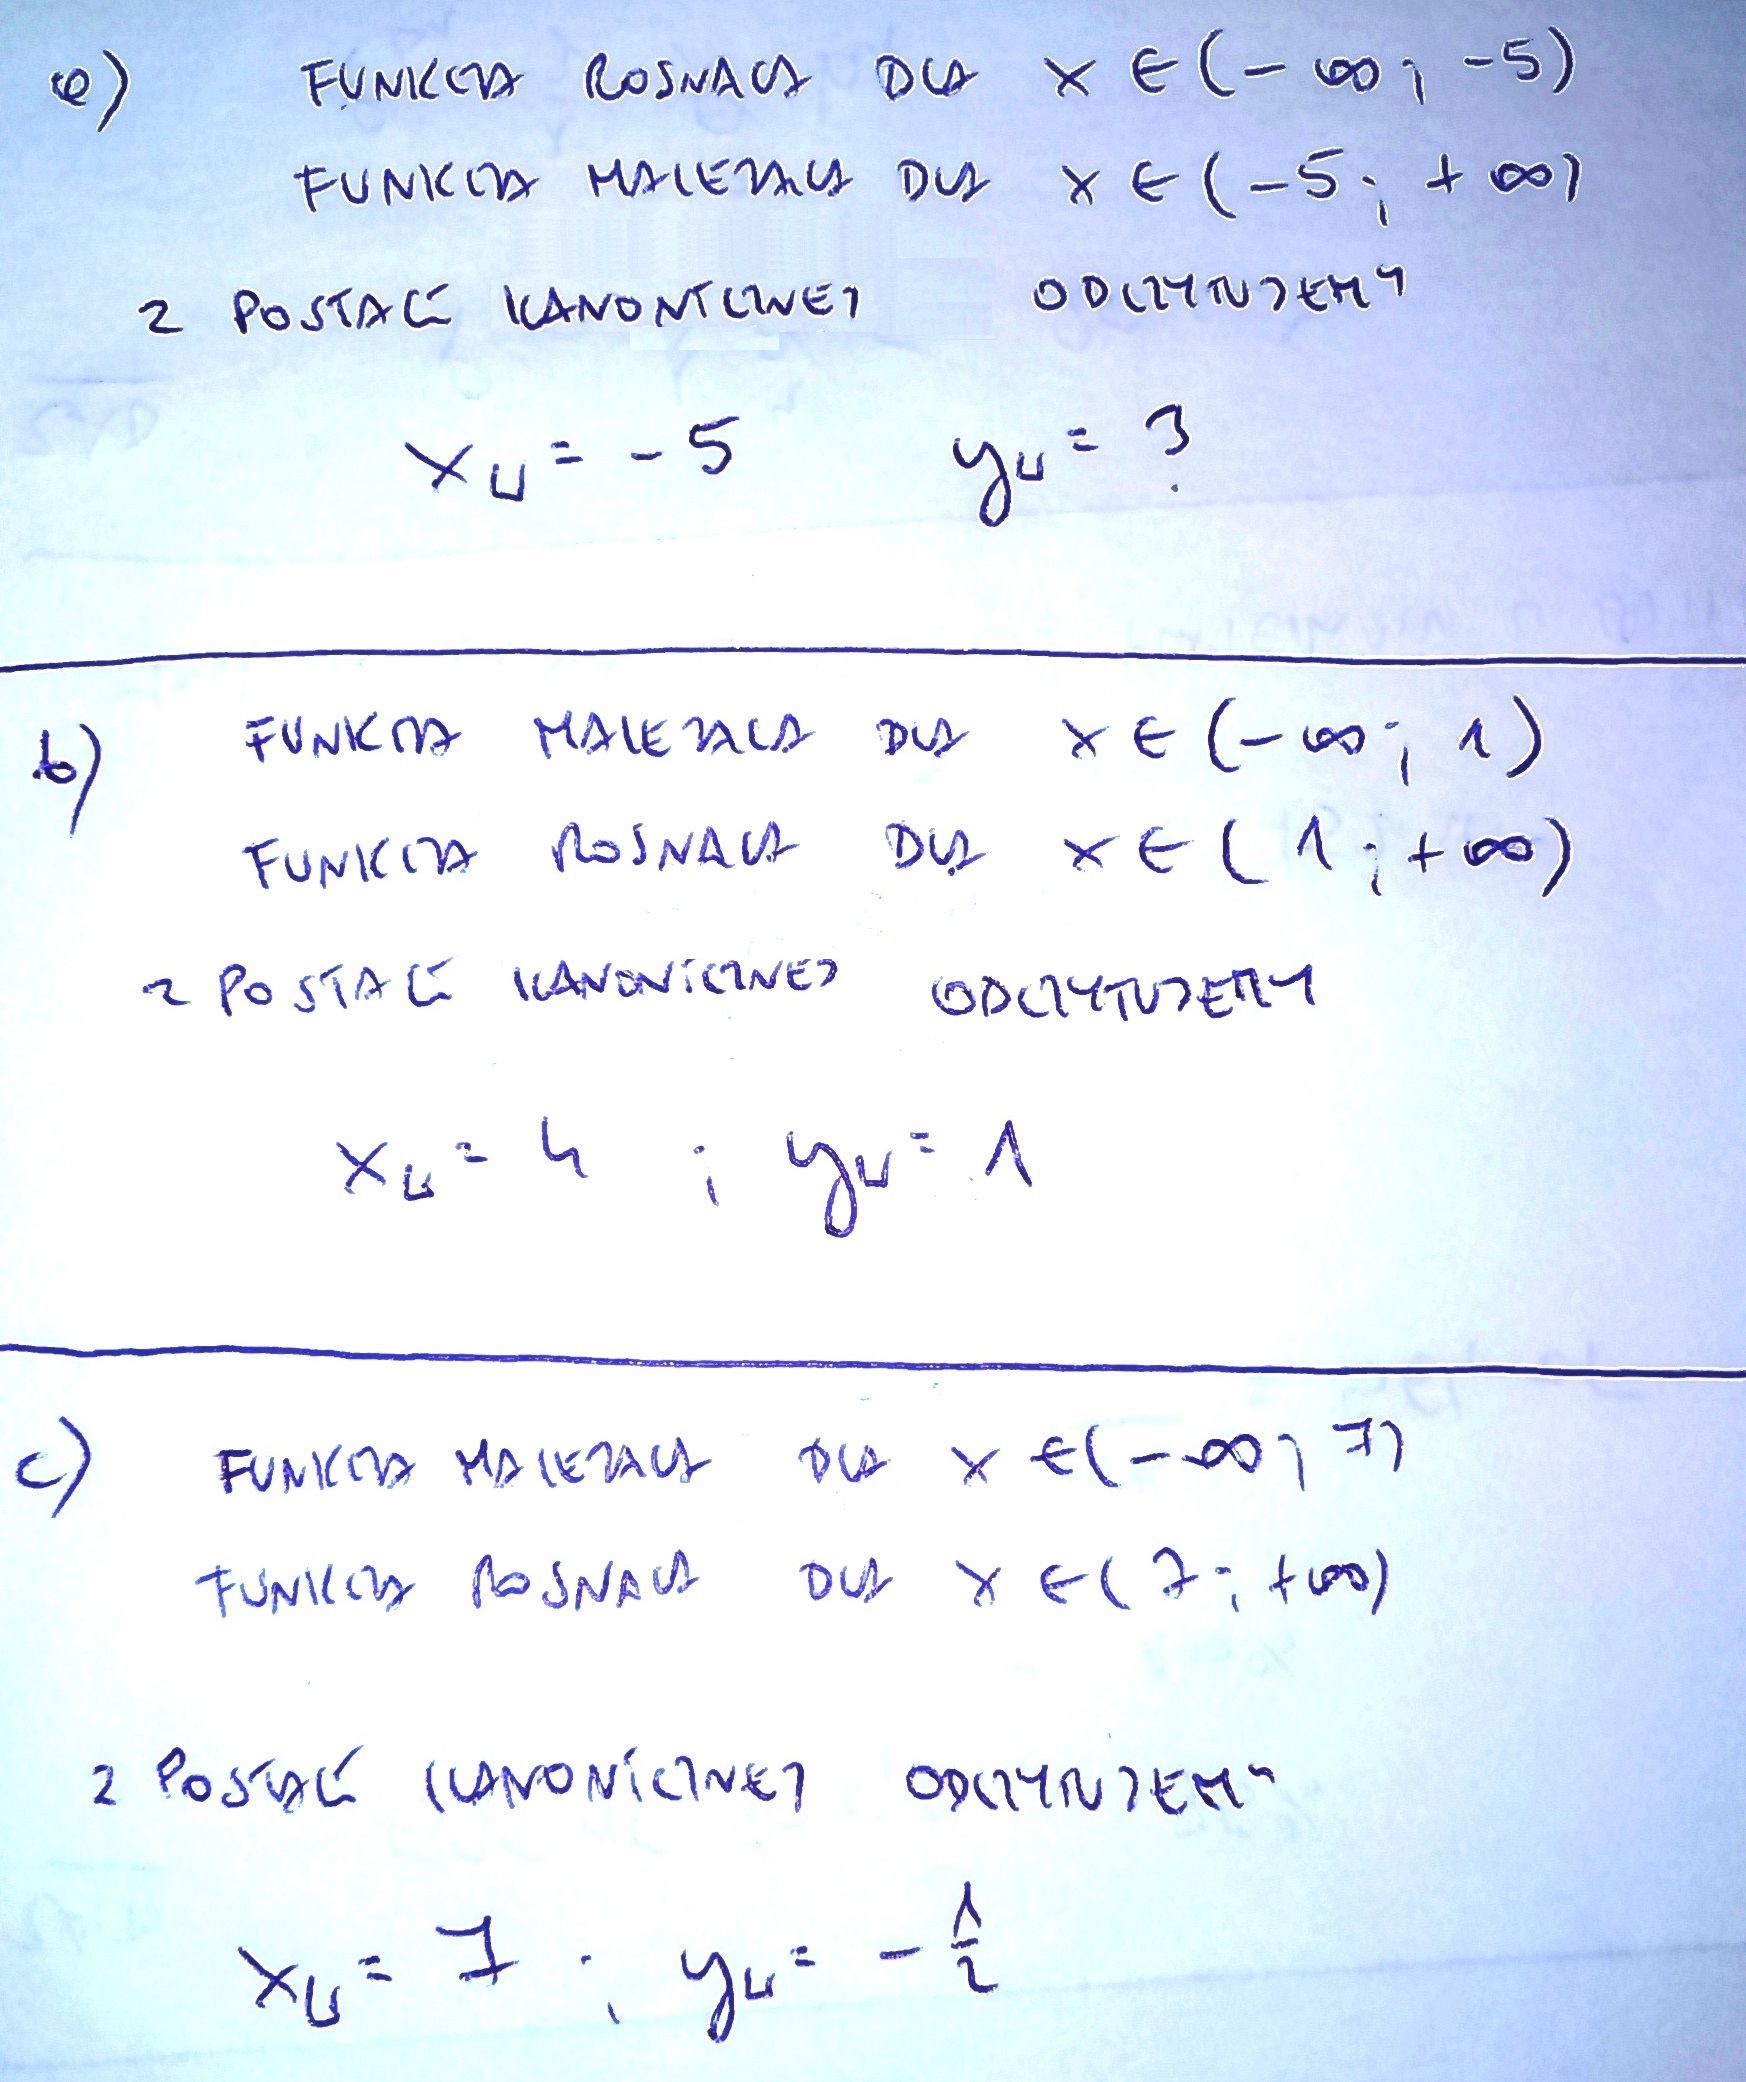 a) FUNKCJA ROSNACA DLA x ∈ (-∞; -5)
FUNKCJA MALEJACA DLA x ∈ (-5; +∞)
Z POSTACI KANONICZNEJ ODCZYTUJEMY
x_w = -5 y_w = ?
b) FUNKCJA MALEJACA DLA x ∈ (-∞; 1)
FUNKCJA ROSNACA DLA x ∈ (1; +∞)
Z POSTACI KANONICZNEJ ODCZYTUJEMY
x_w = 4 ; y_w = 1
c) FUNKCJA MALEJACA DLA x ∈ (-∞; 7)
FUNKCJA ROSNACA DLA x ∈ (7; +∞)
Z POSTACI KANONICZNEJ ODCZYTUJEMY
x_w = 7 ; y_w = -1/2